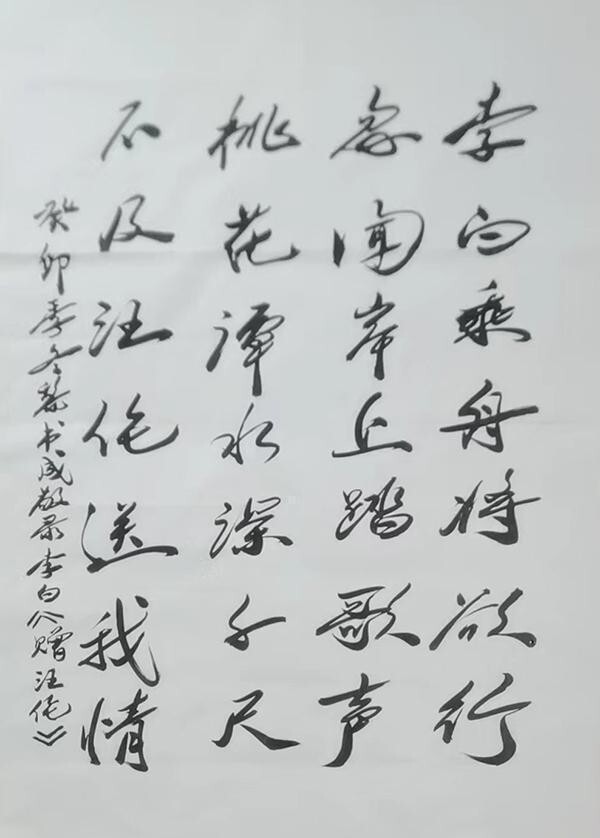 李白乘舟将欲行
忽闻岸上踏歌声
桃花潭水深千尺
不及汪伦送我情
癸卯季冬书成敬录李白《赠汪伦》